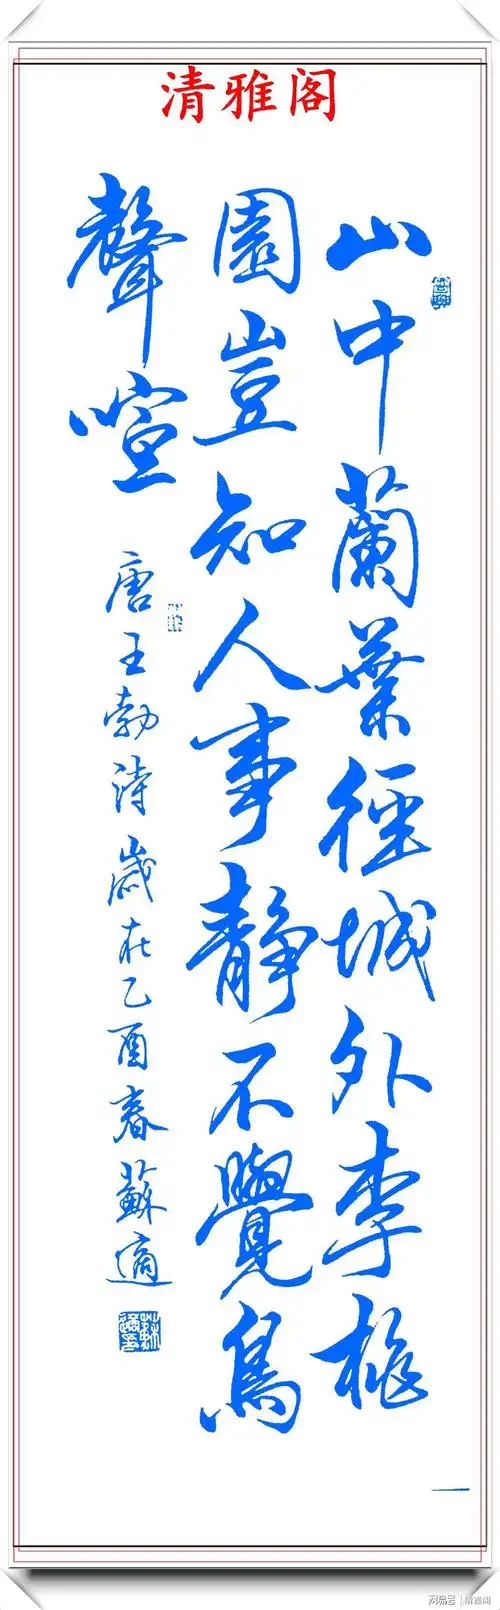 清雅阁
山中蘭葉徑城外李桃
園豈知人事靜不覺鳥
聲喧
唐王勃詩歲在乙酉春蘇適
網易号 | 清雅阁